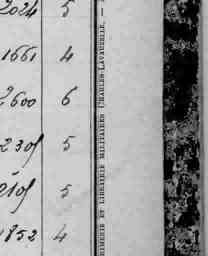 2024 5
1661 4
2600 6
2305 5
2105 5
1852 4
RIMERIE ET LIBRAIRIE MILITAIRES CHARLES-LAVAUZELLE. —